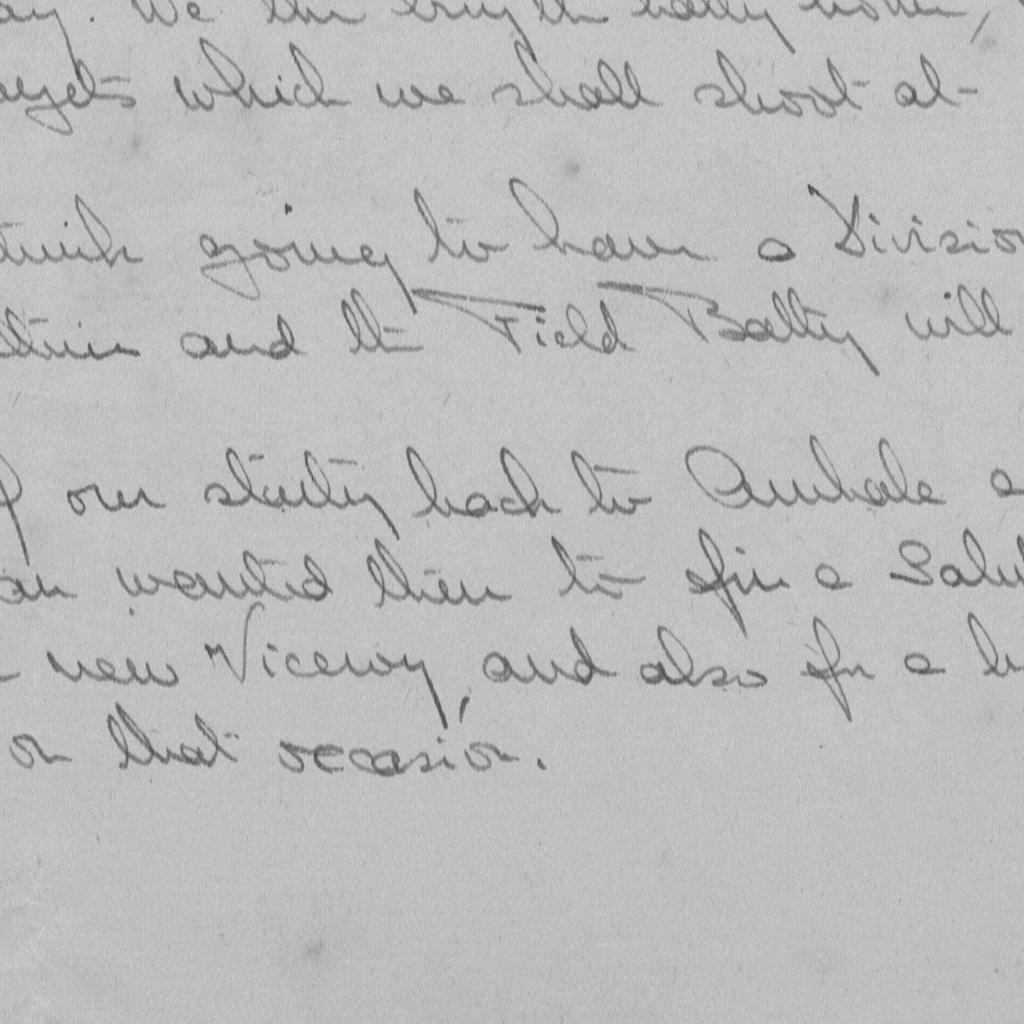 We then brought the batty home,
which we shall shoot at
going to have a Division
and the Field Batty will
our starting back to Ambala a
wanted them to fire a Salut
new Viceroy, and also for a
on that occasion.